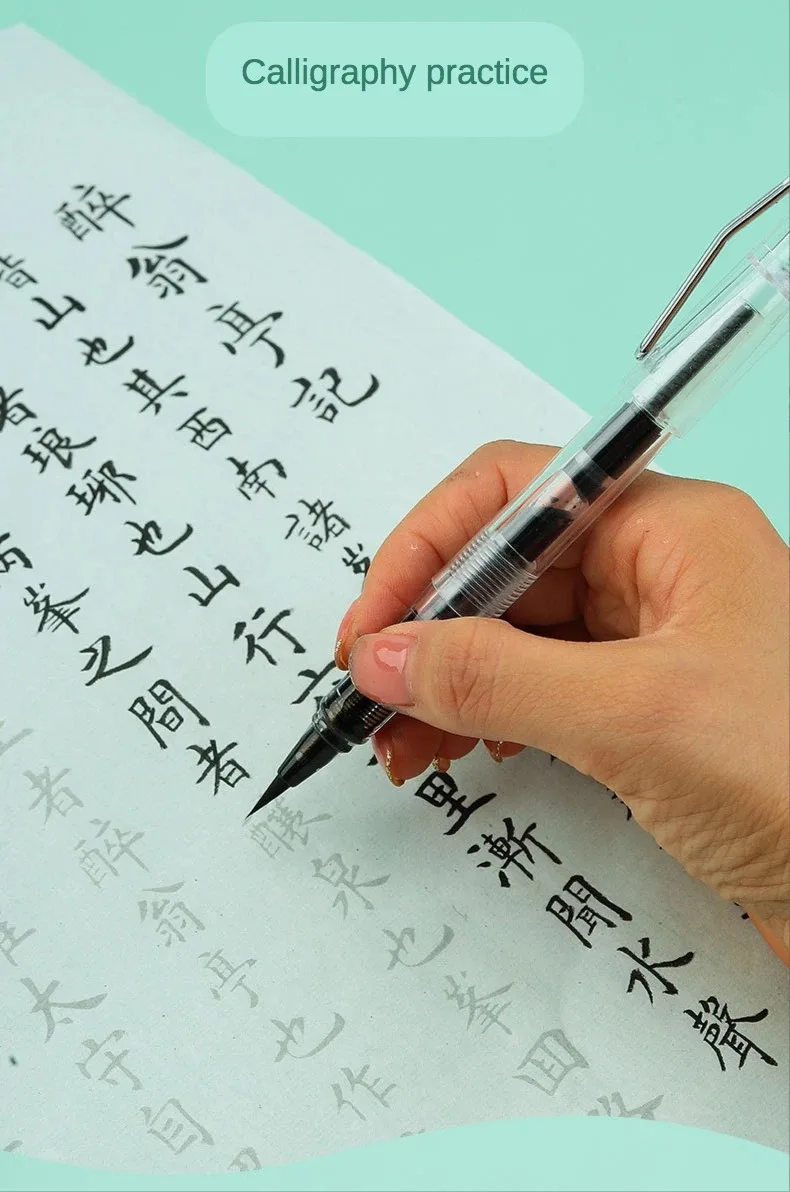 Calligraphy practice
醉翁亭記
皆山也其西南諸
者琅琊也山行
里漸聞水聲
峯之間者釀泉也峯回
者醉翁亭也作
太守自